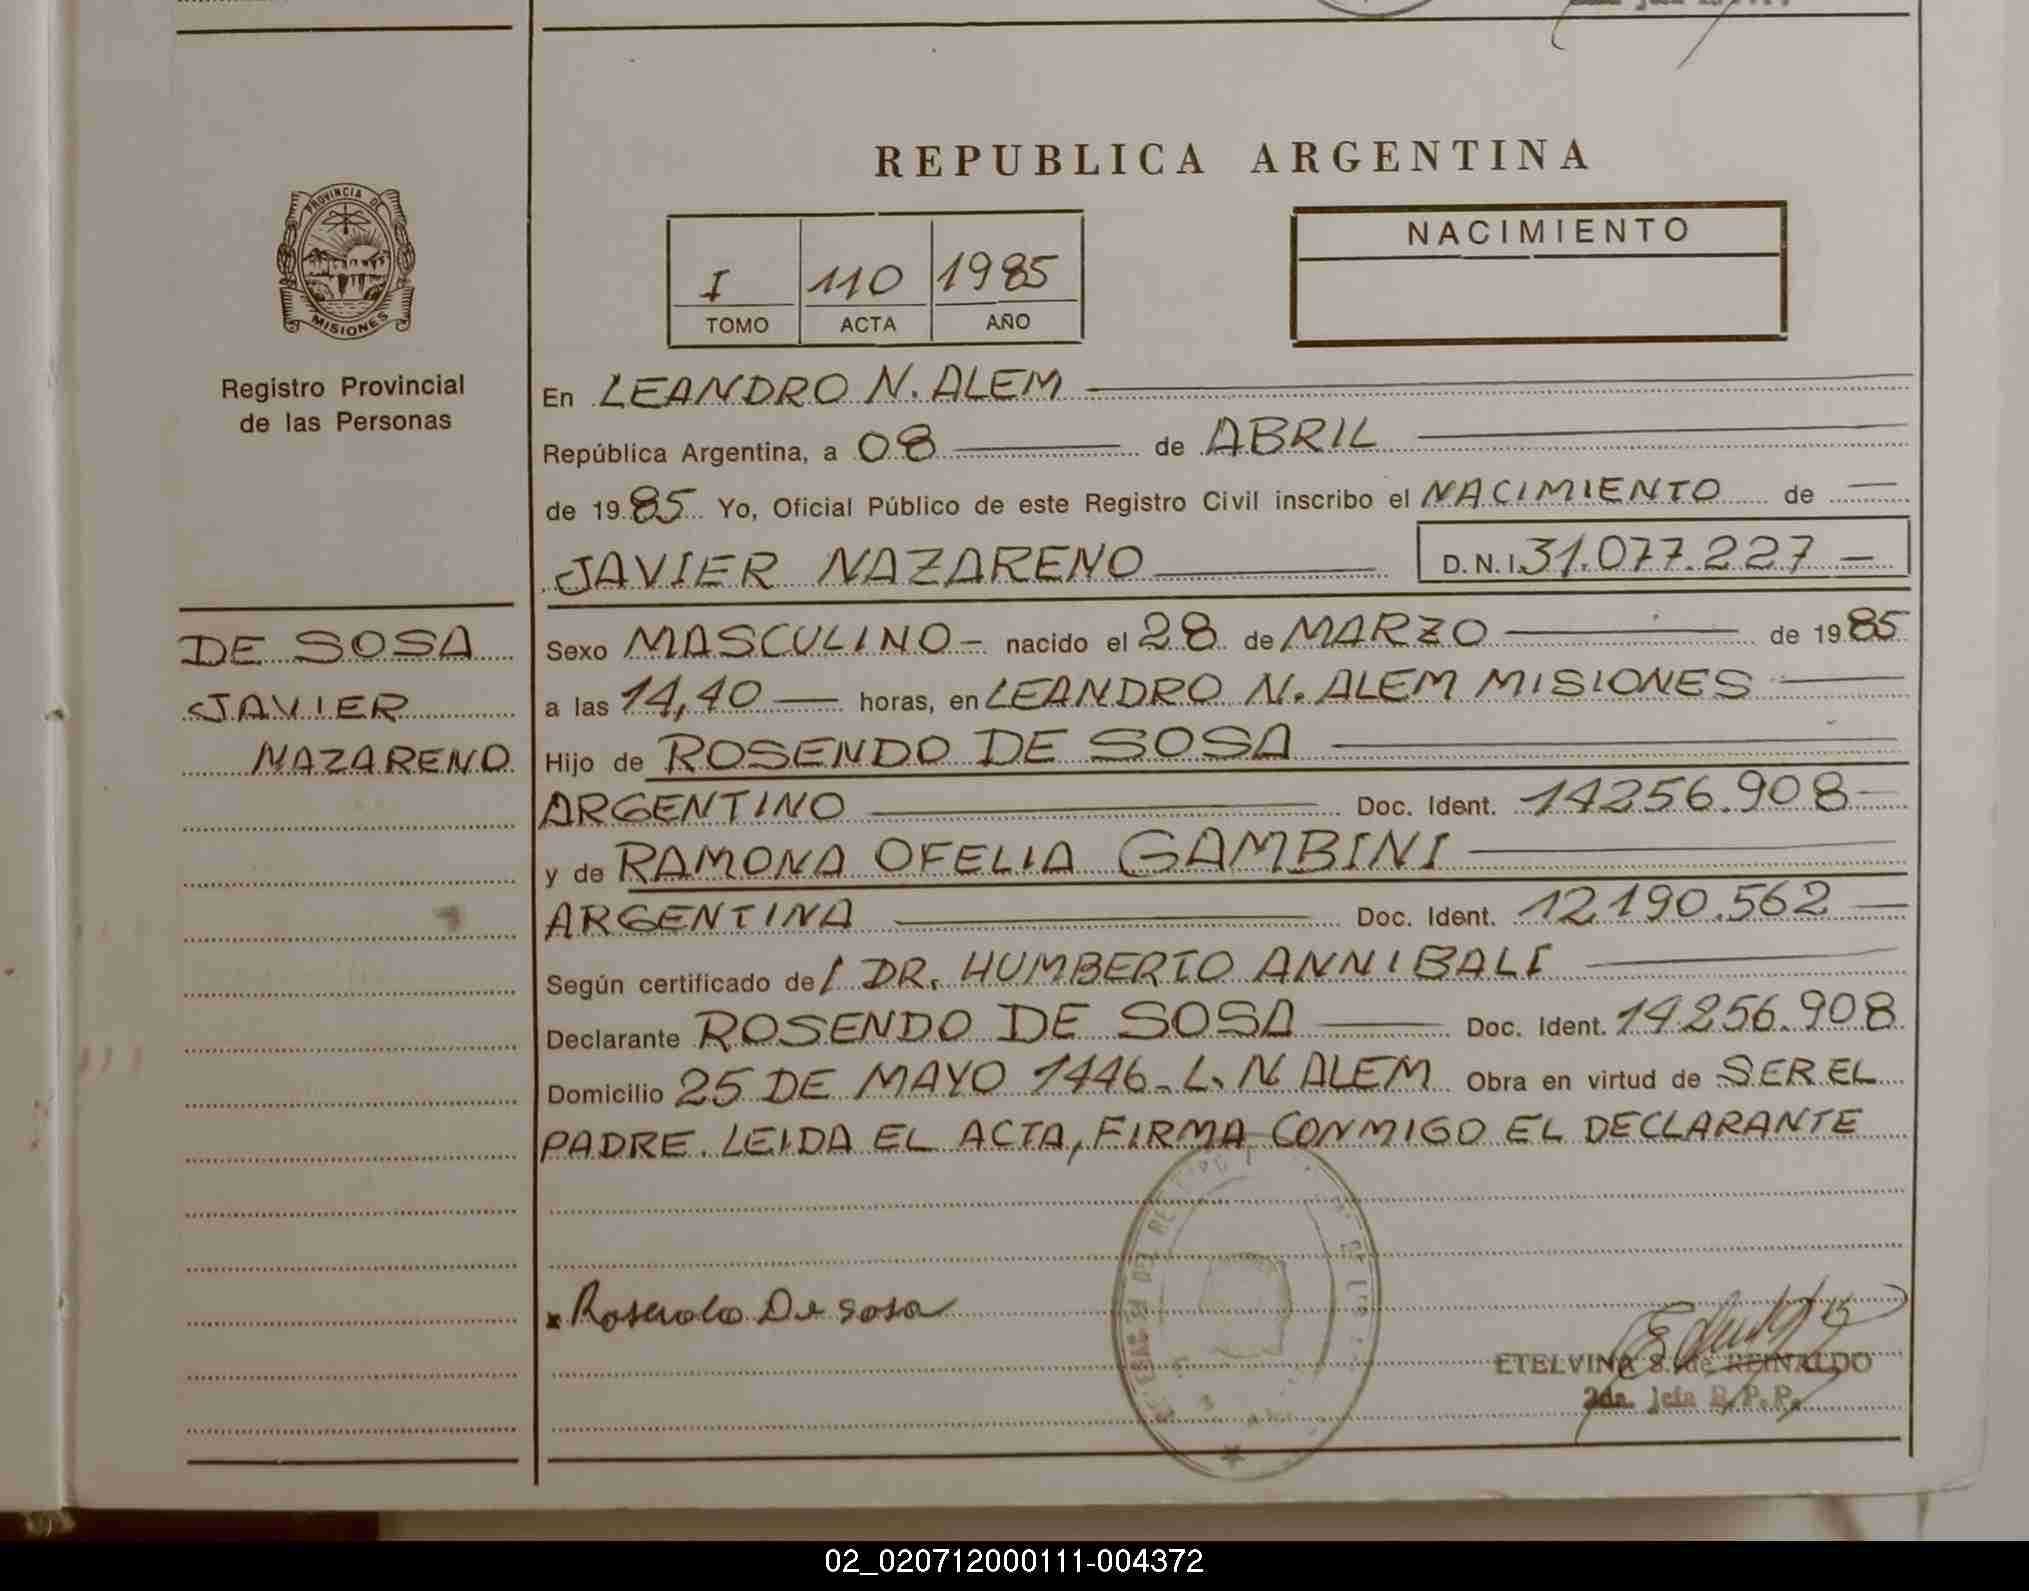 REPUBLICA ARGENTINA
PROVINCIA DE
MISIONES
Registro Provincial
de las Personas
I 110 1985
TOMO ACTA AÑO
NACIMIENTO
En LEANDRO N. ALEM
República Argentina, a 08 de ABRIL
de 1985 Yo, Oficial Público de este Registro Civil inscribo el NACIMIENTO de
JAVIER NAZARENO D.N.I. 31.077.227
DE SOSA
JAVIER
NAZARENO
Sexo MASCULINO nacido el 28 de MARZO de 1985
a las 14,40 horas, en LEANDRO N. ALEM MISIONES
Hijo de ROSENDO DE SOSA
ARGENTINO Doc. Ident. 14256.908
y de RAMONA OFELIA GAMBINI
ARGENTINA Doc. Ident. 12190.562
Según certificado de/ DR. HUMBERTO ANNIBALI
Declarante ROSENDO DE SOSA Doc. Ident. 14256.908
Domicilio 25 DE MAYO 1446- L. N ALEM Obra en virtud de SER EL
PADRE. LEIDA EL ACTA, FIRMA CONMIGO EL DECLARANTE
x Rosendo De sosa
ETELVINA S. de REINALDO
2da. Jefa R.P.P.
02_020712000111-004372